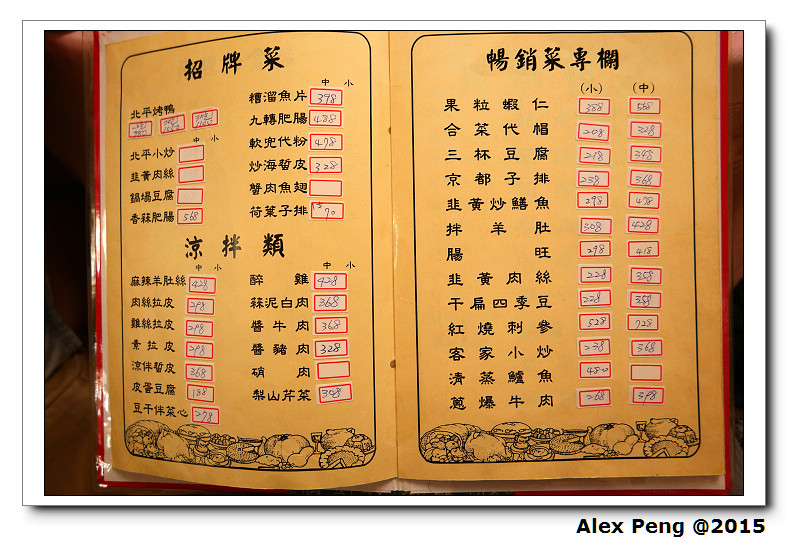 招牌菜
中 小
北平烤鴨
中 小
北平小炒
韮黃肉絲
鍋塌豆腐
香蒜肥腸 568
糟溜魚片 398
九轉肥腸 488
軟兜代粉 478
炒海蜇皮 328
蟹肉魚翅
荷葉子排 70
涼拌類
中 小
麻辣羊肚絲 428
肉絲拉皮 298
雞絲拉皮 298
素拉皮 298
涼伴蜇皮 368
皮蛋豆腐 188
豆干伴菜心 278
中 小
醉雞 428
蒜泥白肉 368
醬牛肉 368
醬豬肉 328
硝肉
梨山芹菜 308
暢銷菜專欄
(小) (中)
果粒蝦仁 388 568
合菜代帽 208 328
三杯豆腐 218 348
京都子排 238 368
韮黃炒鱔魚 298 478
拌羊肚 308 428
腸旺 298 418
韮黃肉絲 228 358
干扁四季豆 228 358
紅燒刺參 528 728
客家小炒 238 368
清蒸鱸魚 480
蔥爆牛肉 268 398
Alex Peng @2015